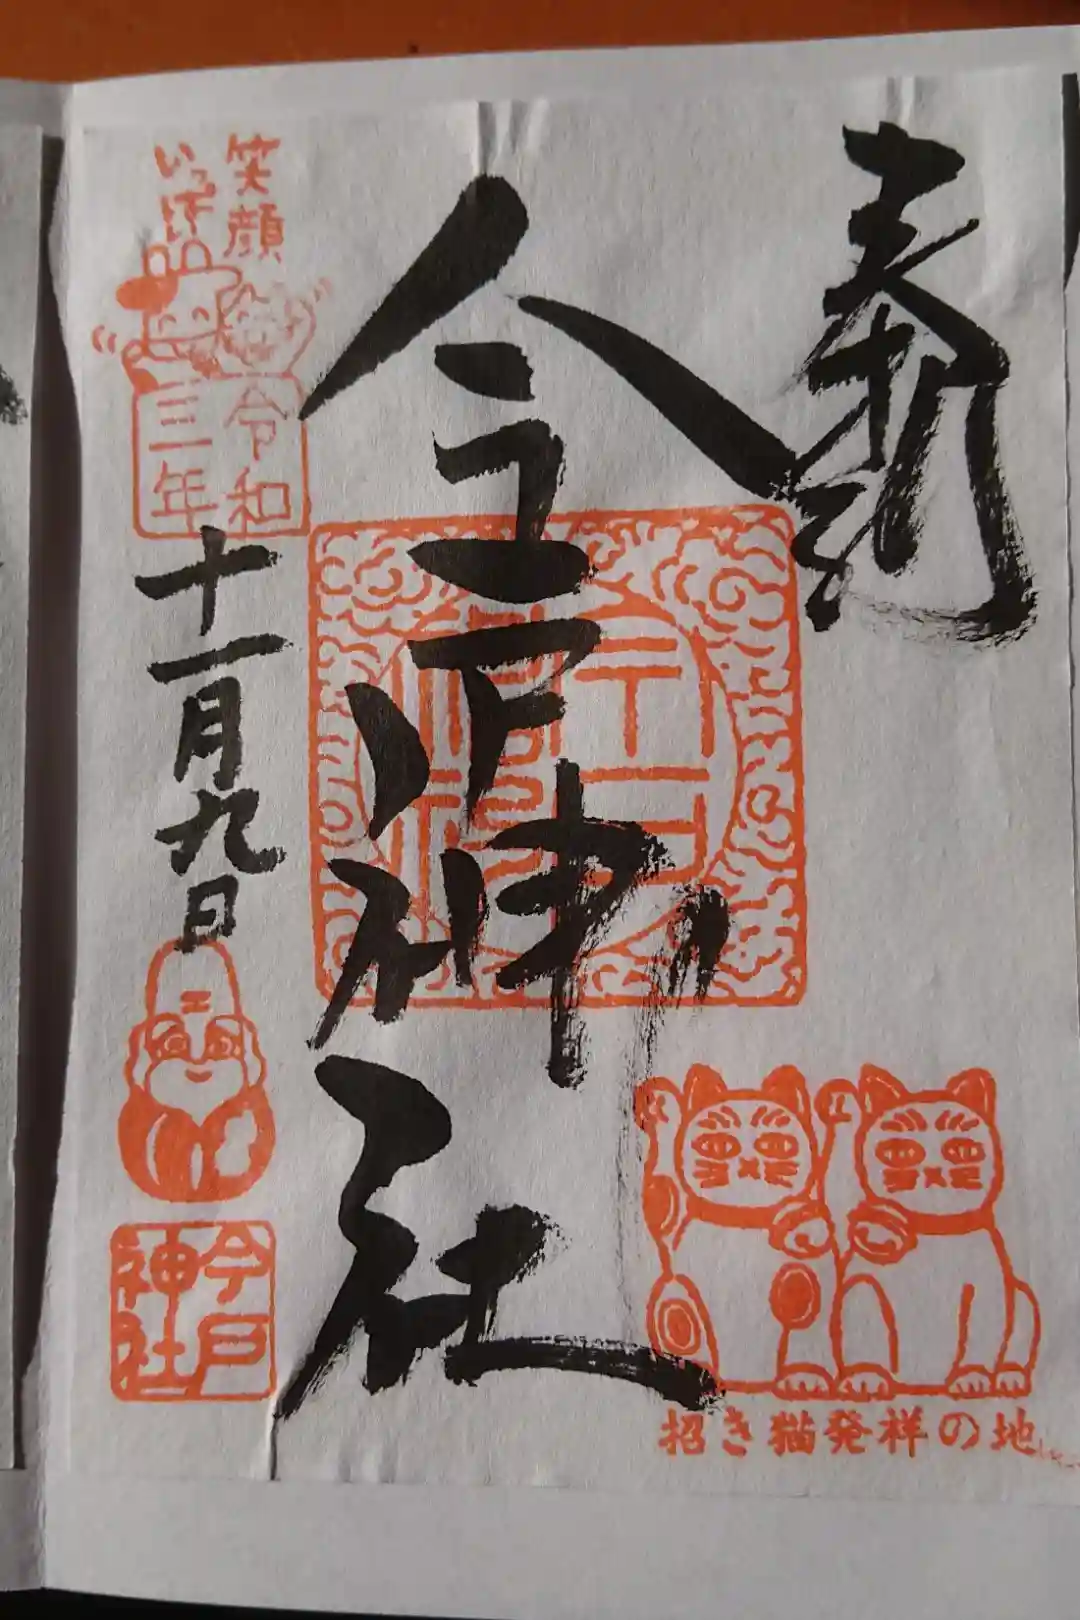 奉納
今戸神社
招き猫発祥の地
笑顔
いっぱい
令和
三年
十一月九日
今戸
神社